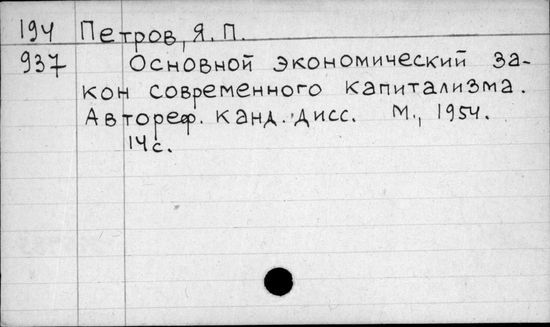 194 Петров, Я. П.
937 Основной экономический за-
кон современного капитализма.
Автореф. канд. дисс. М., 1954.
14с.